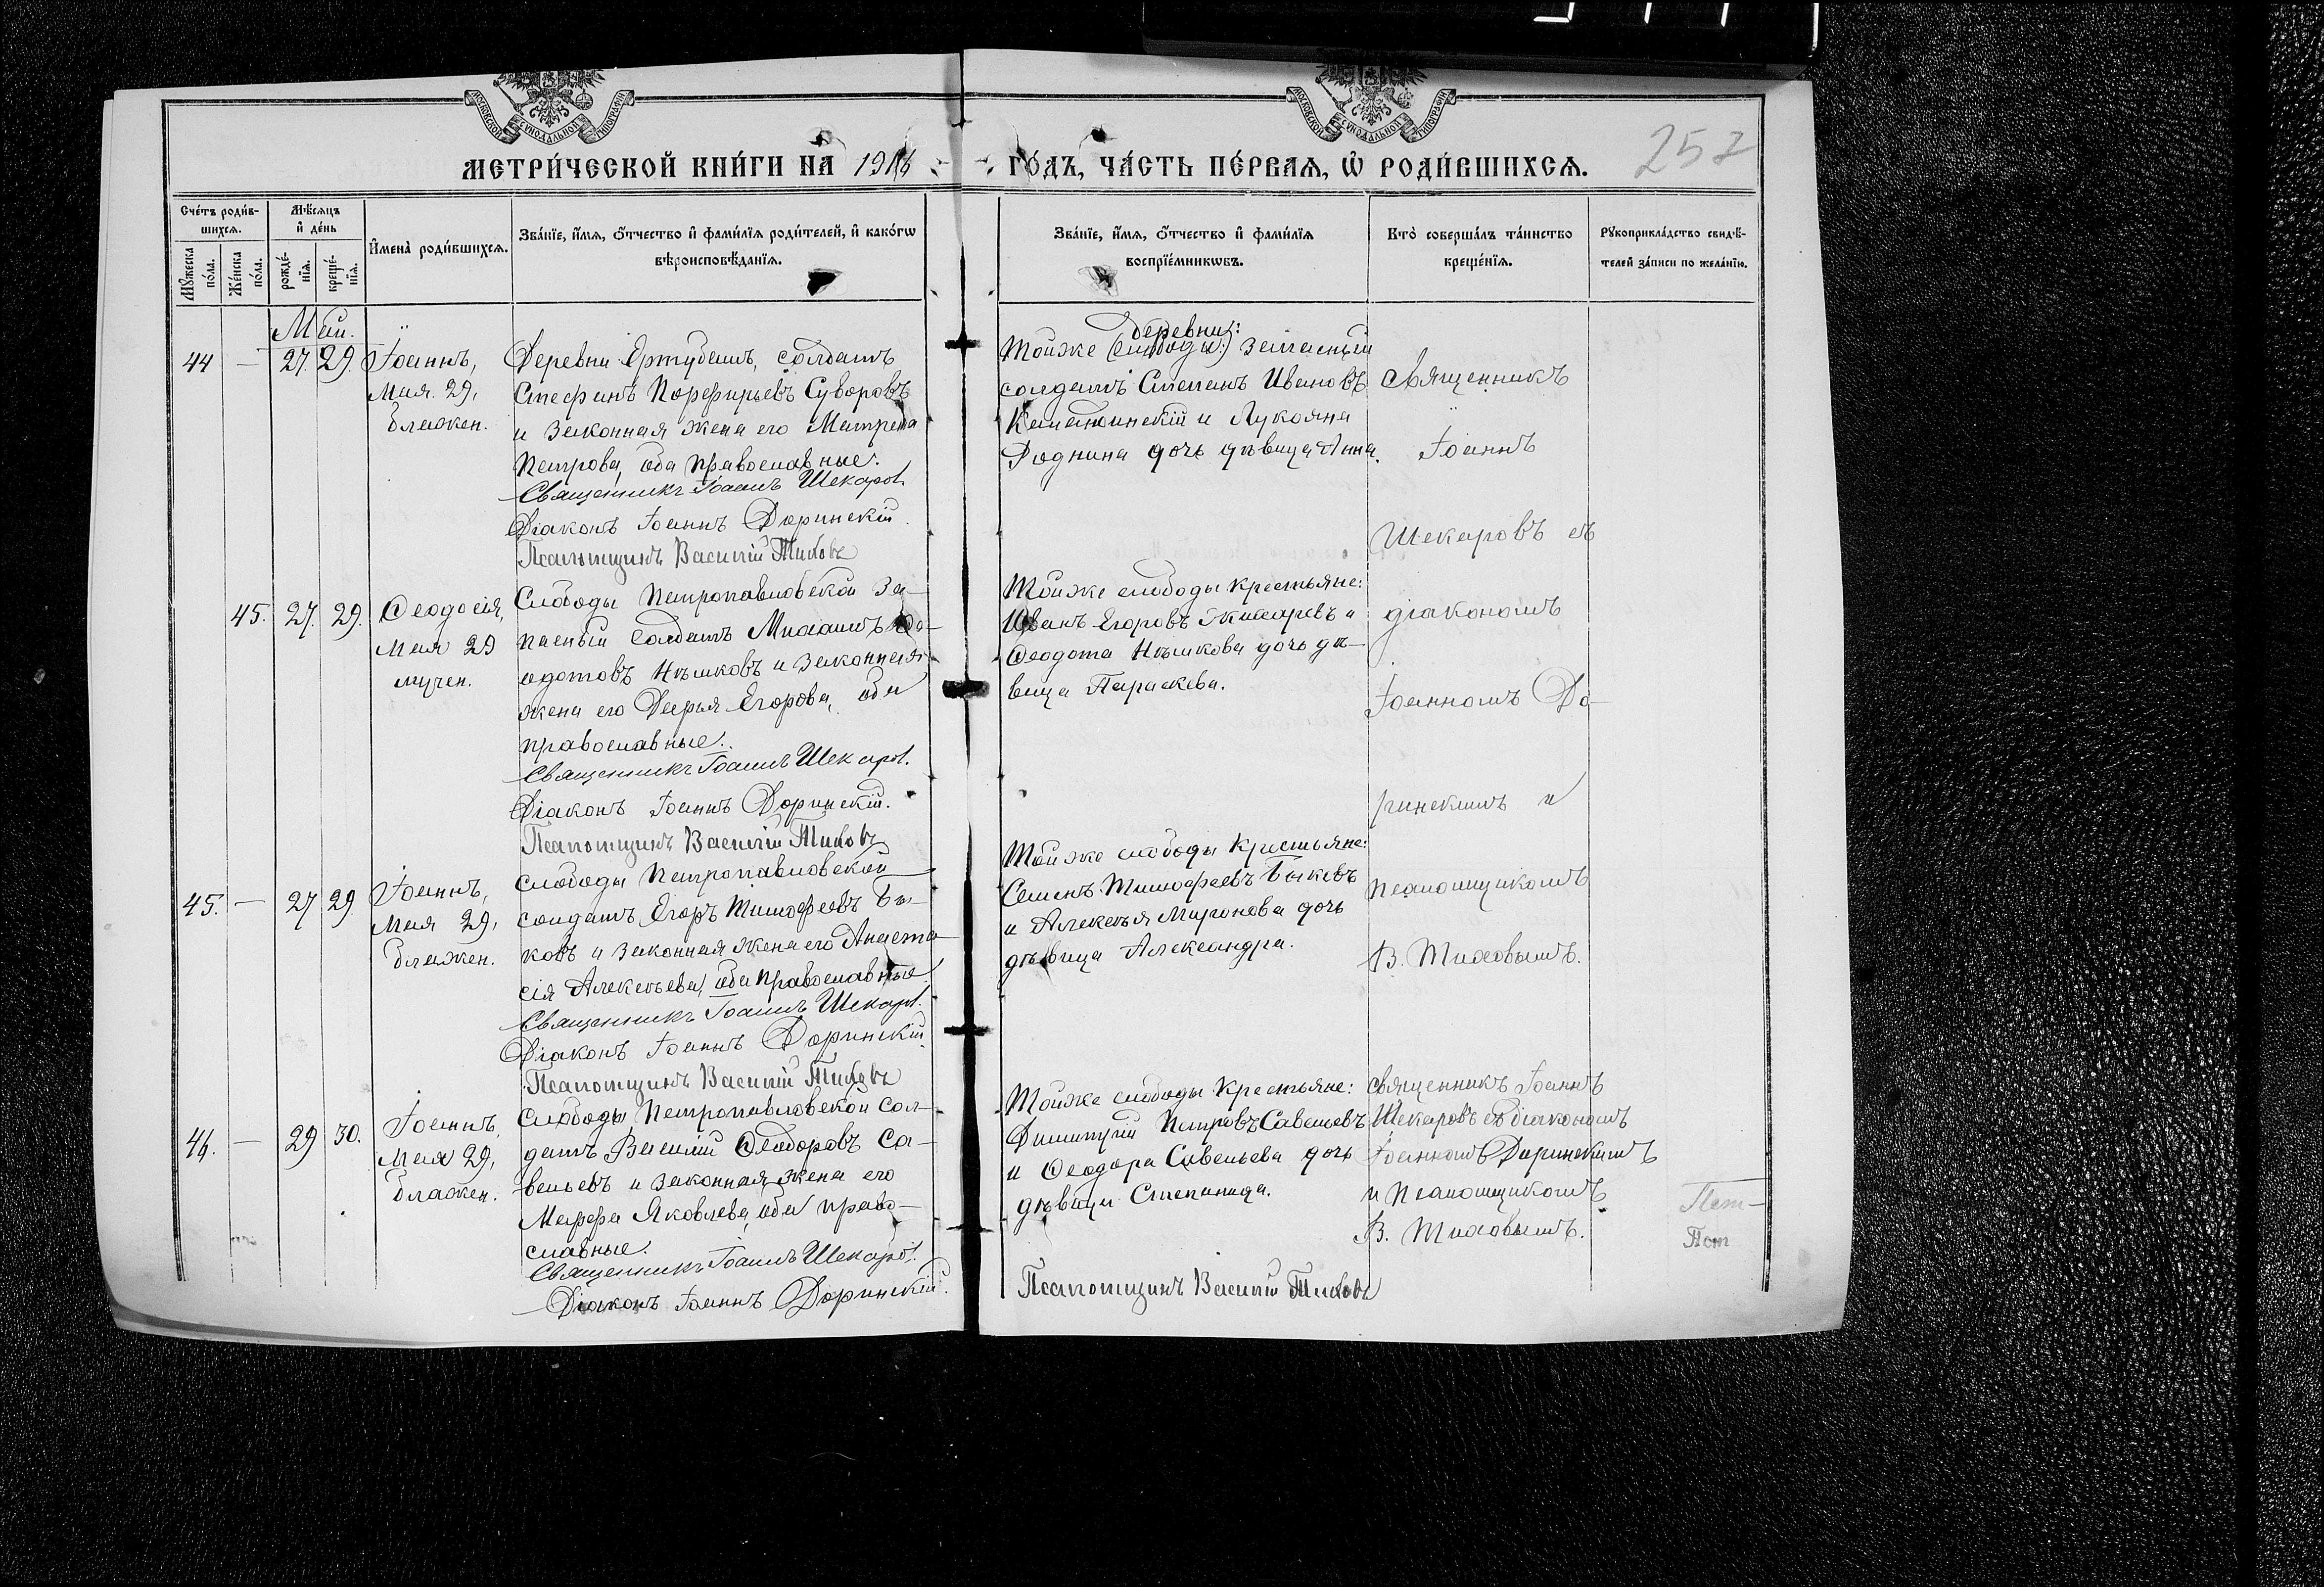 МОСКОВСКОЙ СѴНОДАЛЬНОЙ ТИПОГРАФІИ
МОСКОВСКОЙ СѴНОДАЛЬНОЙ ТИПОГРАФІИ
МЕТРИ́ЧЕСКОЙ КНИ́ГИ НА 1916
ГО́ДЪ, ЧА́СТЬ ПЕ́РВАѦ, Ѡ҆ РОДИ́ВШИХСѦ.
257
Сче́тъ роди́в-
шихсѧ.
Мꙋ́жеска по́ла.
Же́нска по́ла.
Мѣ́сѧцъ
и҆ де́нь
рожде́-
нїѧ.
креще́-
нїѧ.
И҆мена̀ роди́вшихсѧ.
Зва́нїе, и҆́мѧ, ѻ҆́тчество и҆ фами́лїѧ роди́телей, и҆ како́гѡ
вѣроисповѣ́данїѧ.
Зва́нїе, и҆́мѧ, ѻ҆́тчество и҆ фами́лїѧ
воспрїе́мникѡвъ.
Кто̀ соверша́лъ та́инство
креще́нїѧ.
Рꙋкоприкла́дство свидѣ́-
телей за́писи по жела́нїю.
Май.
44 — 27. 29. Іоаннъ,
Мая 29,
блажен.
Деревни Ертубаш, солдатъ
Стефанъ Порфирьевъ Суворовъ
и законная жена его Матрена
Петрова, оба православные.
Священникъ Іоаннъ Шекаров.
Діаконъ Іоаннъ Доринскій.
Псаломщикъ Василій Тиховъ
деревни:
Тойже (слободы:) запасный
солдатъ Степанъ Ивановъ
и Лукояна
Роднина дочь дѣвица Анна.
Священникъ
Іоаннъ
Шекаровъ съ
45. 27. 29. Ѳеодосія,
Мая 29
мучен.
Слободы Петропавловской за-
пасный солдатъ Михаилъ Ѳе-
одотовъ Нѣшковъ и законная
жена его Дарья Егорова, оба
православные.
Священникъ Іоаннъ Шекаров.
Діаконъ Іоаннъ Доринскій.
Псаломщикъ Василій Тиховъ
Тойже слободы крестьяне:
Иванъ Егоровъ и
Ѳеодота Нѣшкова дочь дѣ-
вица Параскева.
діакономъ
Іоанномъ До-
ринскимъ и
45. — 27 29 Іоаннъ,
Мая 29,
блажен.
Слободы Петропавловской
солдатъ Егоръ Тимофеевъ Бы-
ковъ и законная жена его Анаста-
сія Алексѣева, оба православные
Священникъ Іоаннъ Шекаров.
Діаконъ Іоаннъ Доринскій.
Псаломщикъ Василій Тиховъ
Тойже слободы крестьяне:
Семенъ Тимофеевъ Быковъ
и Алексѣя Миронова дочь
дѣвица Александра.
псаломщикомъ
В. Тиховымъ.
46. — 29 30. Іоаннъ,
Мая 29,
блажен.
Слободы Петропавловской сол-
датъ Василій Ѳеодоровъ Са-
вельевъ и законная жена его
Марфа Яковлева, оба право-
славные.
Священникъ Іоаннъ Шекаров.
Діаконъ Іоаннъ Доринскій.
Тойже слободы крестьяне:
Димитрій Петровъ Савельевъ
и Ѳеодора Савельева дочь
дѣвица Степанида.
Псаломщикъ Василій Тиховъ
Священникъ Іоаннъ
Шекаровъ съ діакономъ
Іоанномъ Доринскимъ
и псаломщикомъ
В. Тиховымъ.
Пет-
Пет